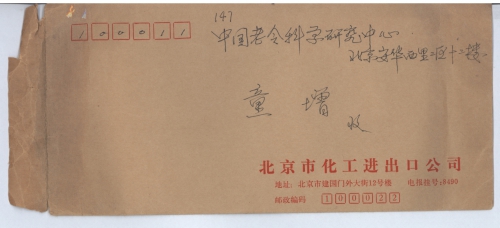 147
100011
中国老令科学研究中心
北京安华西里二区十二楼
童 增
收
北京市化工进出口公司
地址：北京市建国门外大街12号楼 电报挂号：8490
邮政编码 100022